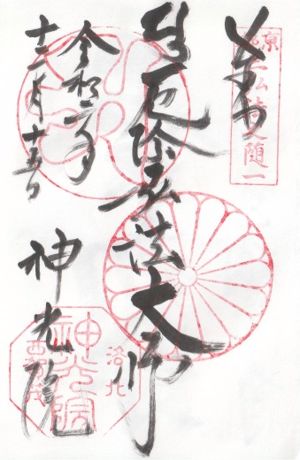 京三弘法随一
厄除弘法大師
令和二年
十二月十五日
神光院
洛北
神光院